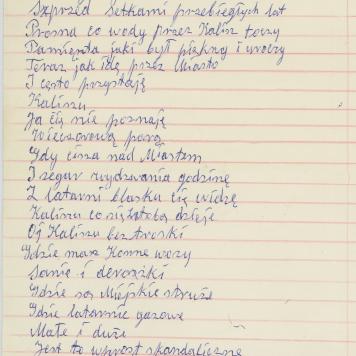 Szprzed Setkami przebiegłych lat
Prosna co wody przez Kalisz toczy
Pamięnta jaki był piękny i uroczy
Teraz jak idę przez Miasto
I często przystaję
Kaliszu
Ja cię nie poznaję
Wieczorową porą
Gdy cisza nad Miastem
I zegar wydzwania godzinę
Z latarni blasku cię widzę
Kaliszu co się stobą dzieje
Oj Kaliszu bez troski
Gdzie masz Konne wozy
Sanie i dorożki
Gdzie są Miejskie struże
Gdzie latarnie gazowe
Małe i duże
Jest to wprost skandaliczne